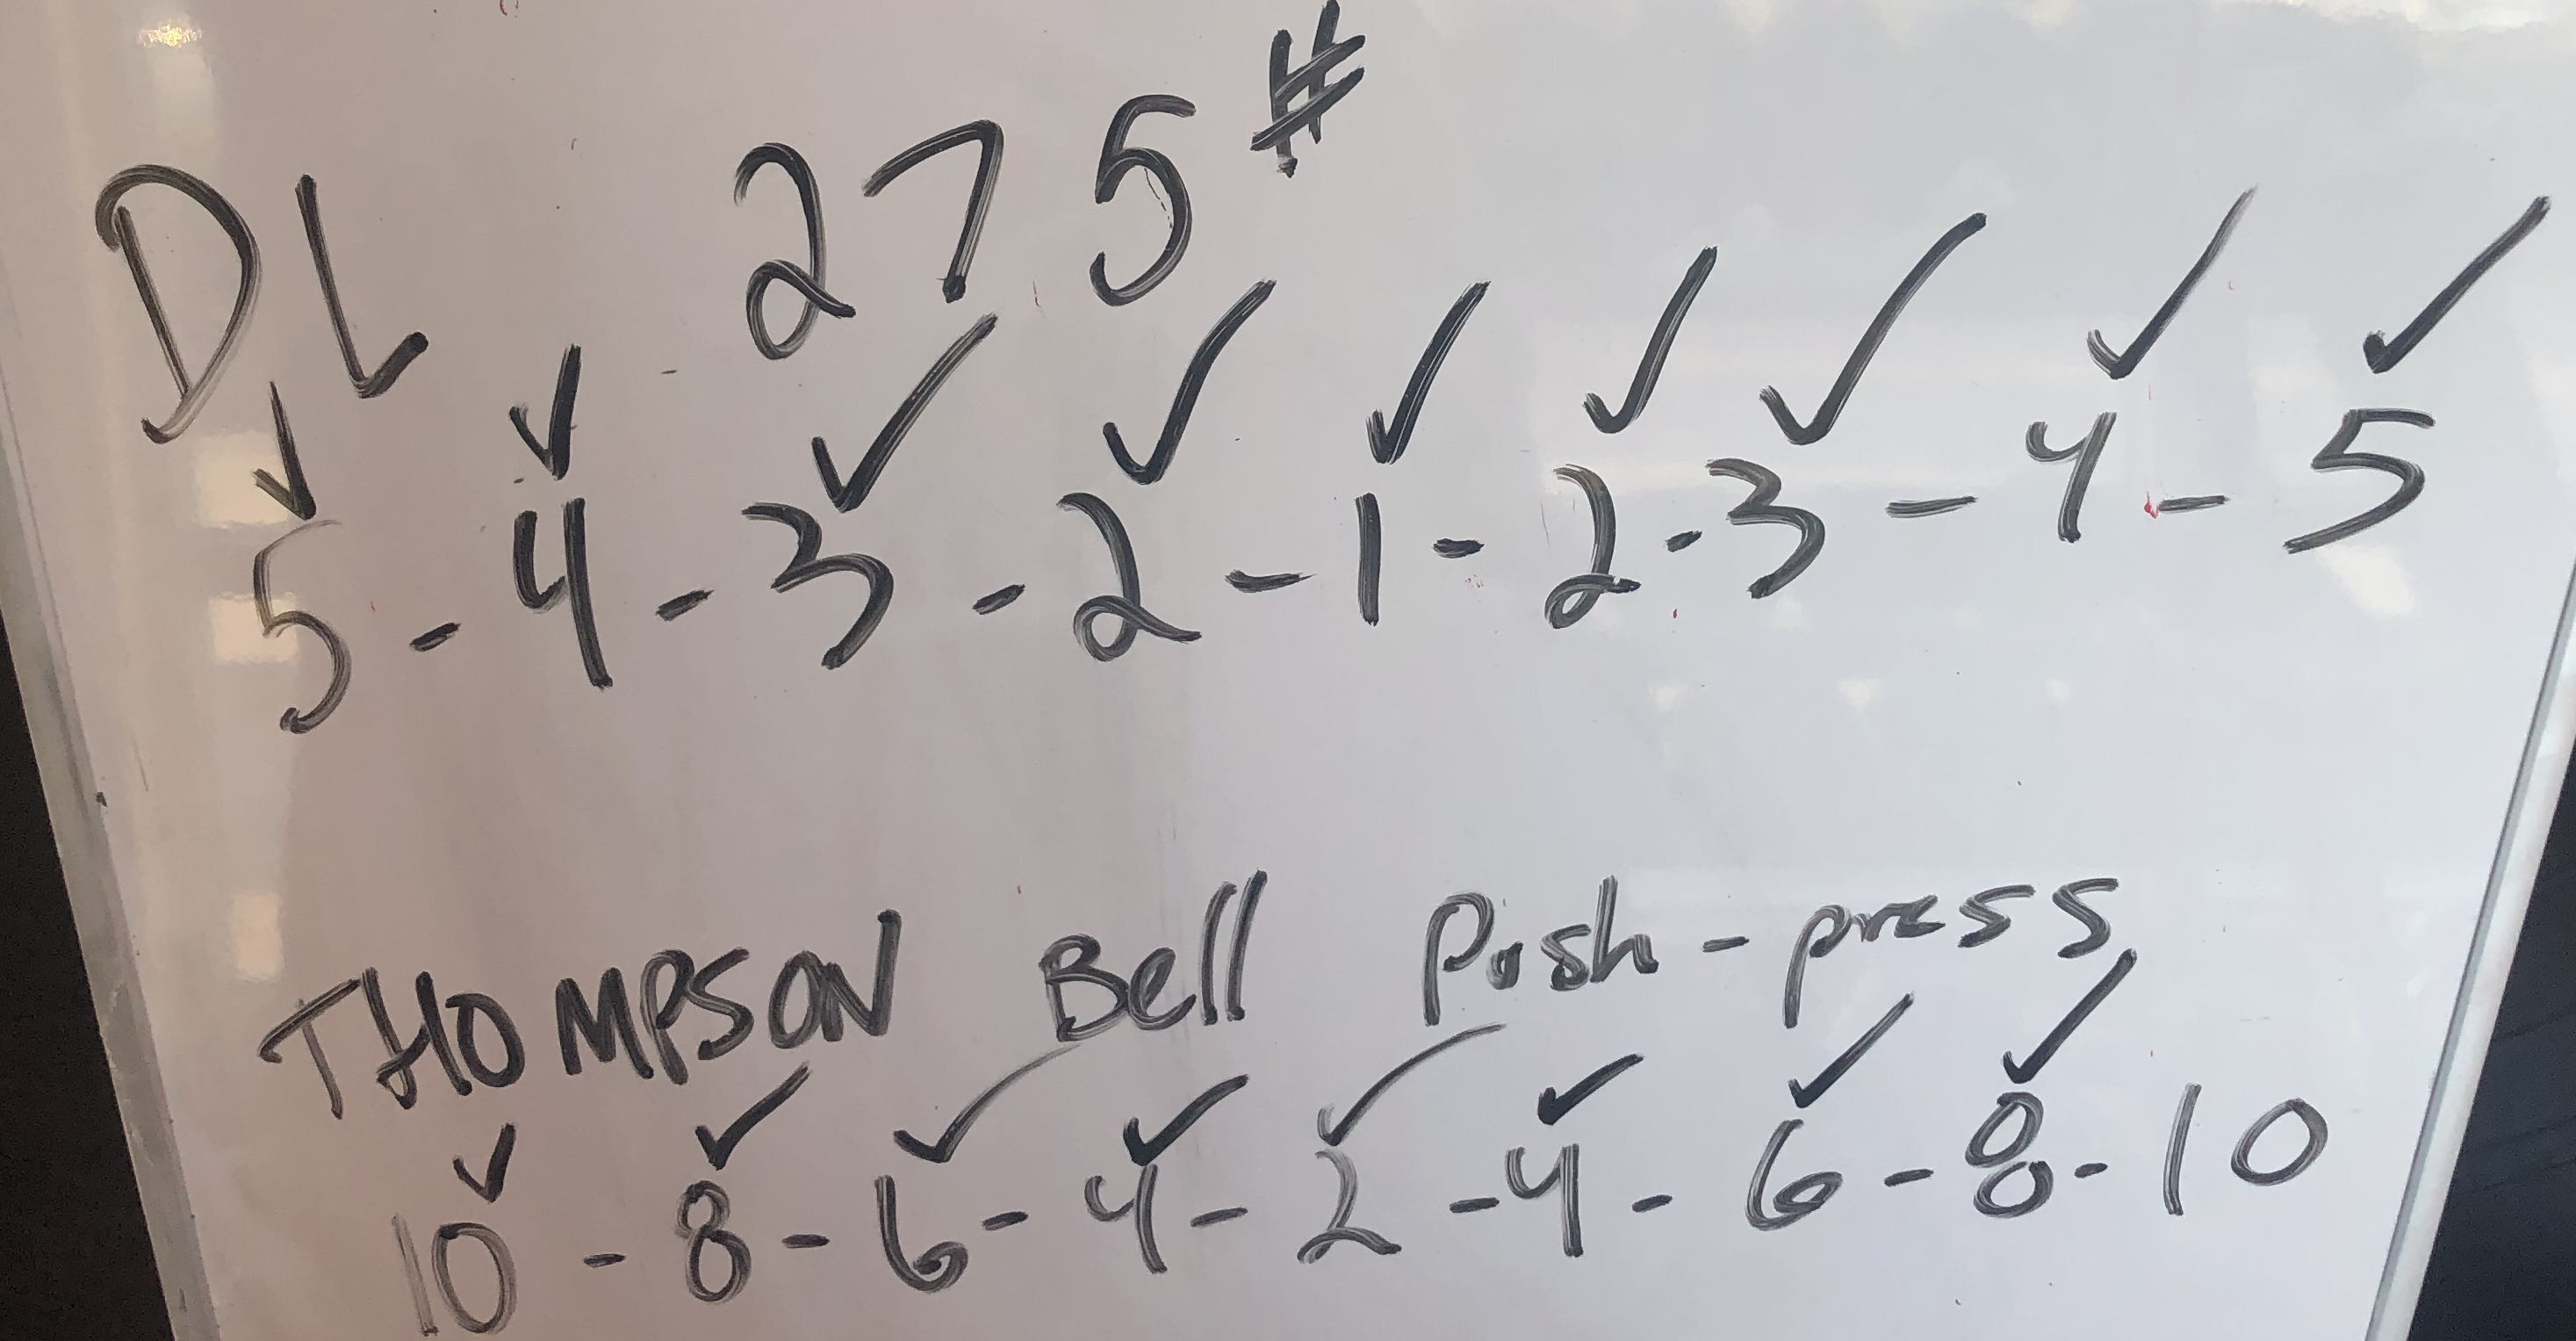 DL 275#
✓ ✓ ✓ ✓ ✓ ✓ ✓ ✓ ✓
5 - 4 - 3 - 2 - 1 - 2 - 3 - 4 - 5
THOMPSON Bell Push-press
✓ ✓ ✓ ✓ ✓ ✓ ✓ ✓
10 - 8 - 6 - 4 - 2 - 4 - 6 - 8 - 10